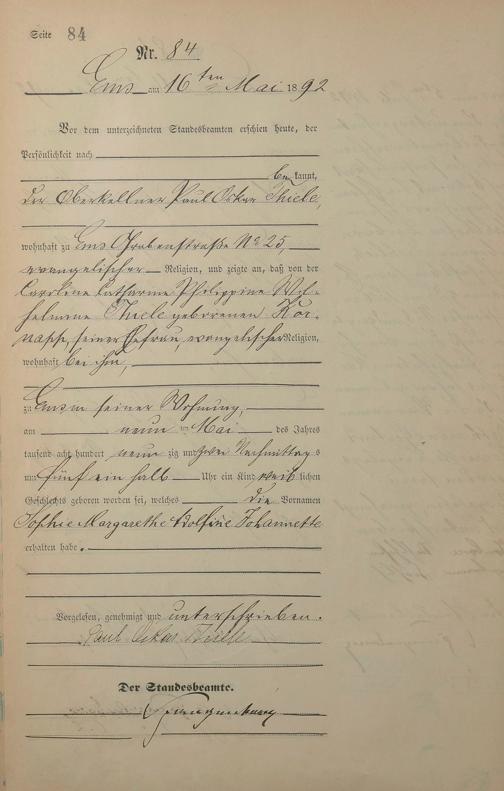 Seite 84
Nr. 84
Ems am 16ten Mai 1892
Vor dem unterzeichneten Standesbeamten erschien heute, der
Persönlichkeit nach
bekannt,
der Oberkellner Paul Oskar Thiele,
wohnhaft zu Ems Grabenstraße No 25,
evangelischer Religion, und zeigte an, daß von der
Caroline Catharine Philippine Wil-
helmine Thiele geborenen
seiner Ehefrau, evangelischer Religion,
wohnhaft bei ihm,
zu Ems in seiner Wohnung,
am neun ten Mai des Jahres
tausend acht hundert neun zig und zwei Nachmittags
um fünf ein halb Uhr ein Kind weib lichen
Geschlechts geboren worden sei, welches die Vornamen
Sophie Margarethe Adolfine Johannette
erhalten habe.
Vorgelesen, genehmigt und unterschrieben.
Paul Oskar Thiele
Der Standesbeamte.